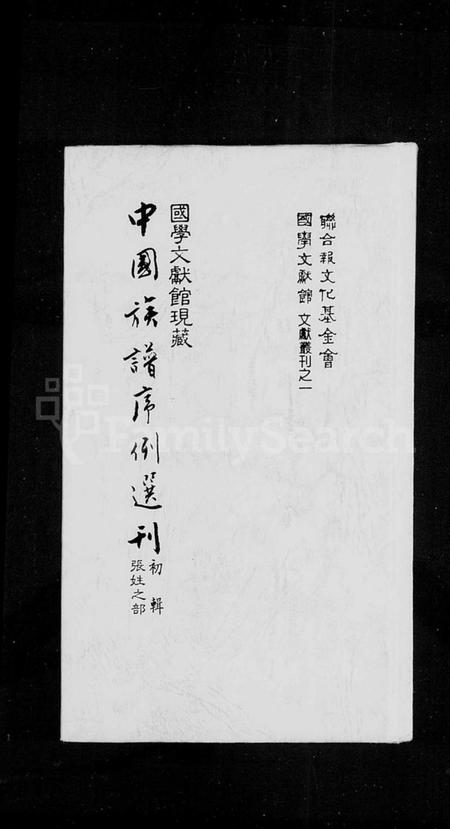 聯合報文化基金會
國學文獻館 文獻叢刊之一
國學文獻館現藏
中国族譜序例選刊
初輯
張姓之部
FamilySearch